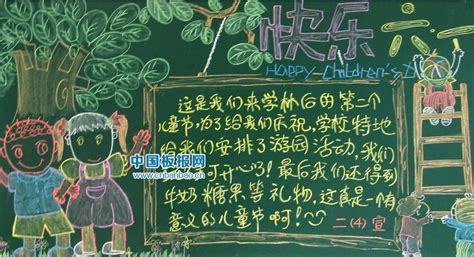 快乐六一
HAPPY Children's D
这是我们来学林后的第二个
儿童节,为了给我们庆祝,学校特地
给我们安排了游园活动,我们
可开心了!最后我们还得到
牛奶糖果等礼物,这真是一个有
意义的儿童节啊!
二(4)宣
中国板报网
www.cnbanbao.cn